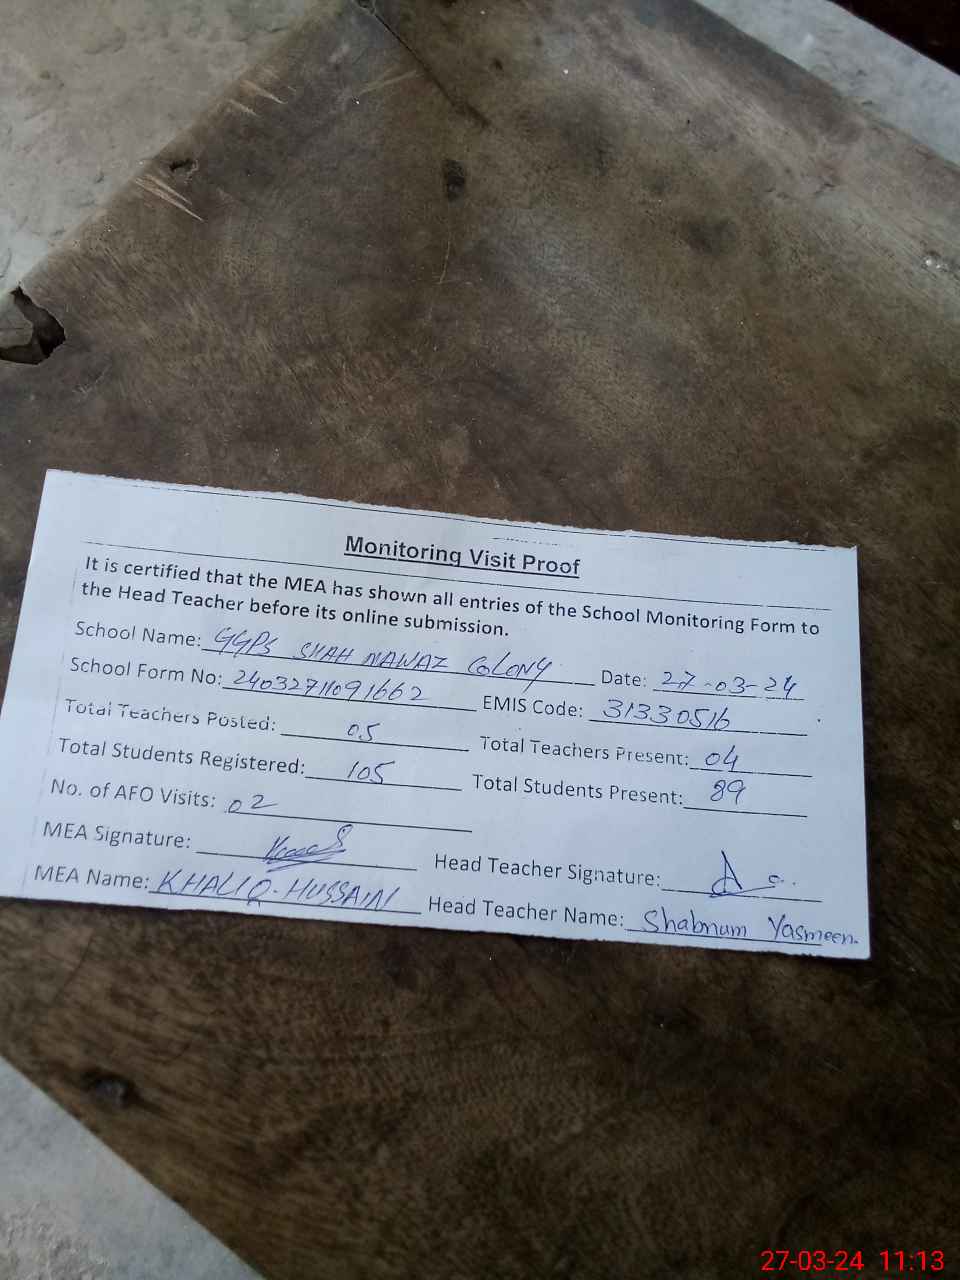 Monitoring Visit Proof
It is certified that the MEA has shown all entries of the School Monitoring Form to
the Head Teacher before its online submission.
School Name: GGPS SHAH NAWAZ COLONY Date: 27-03-24
School Form No: 24032711091662 EMIS Code: 31330516
Total Teachers Posted: 05 Total Teachers Present: 04
Total Students Registered: 105 Total Students Present: 89
No. of AFO Visits: 02
MEA Signature: Head Teacher Signature:
MEA Name: KHALIQ-HUSSAIN Head Teacher Name: Shabnum Yasmeen.
27-03-24 11:13